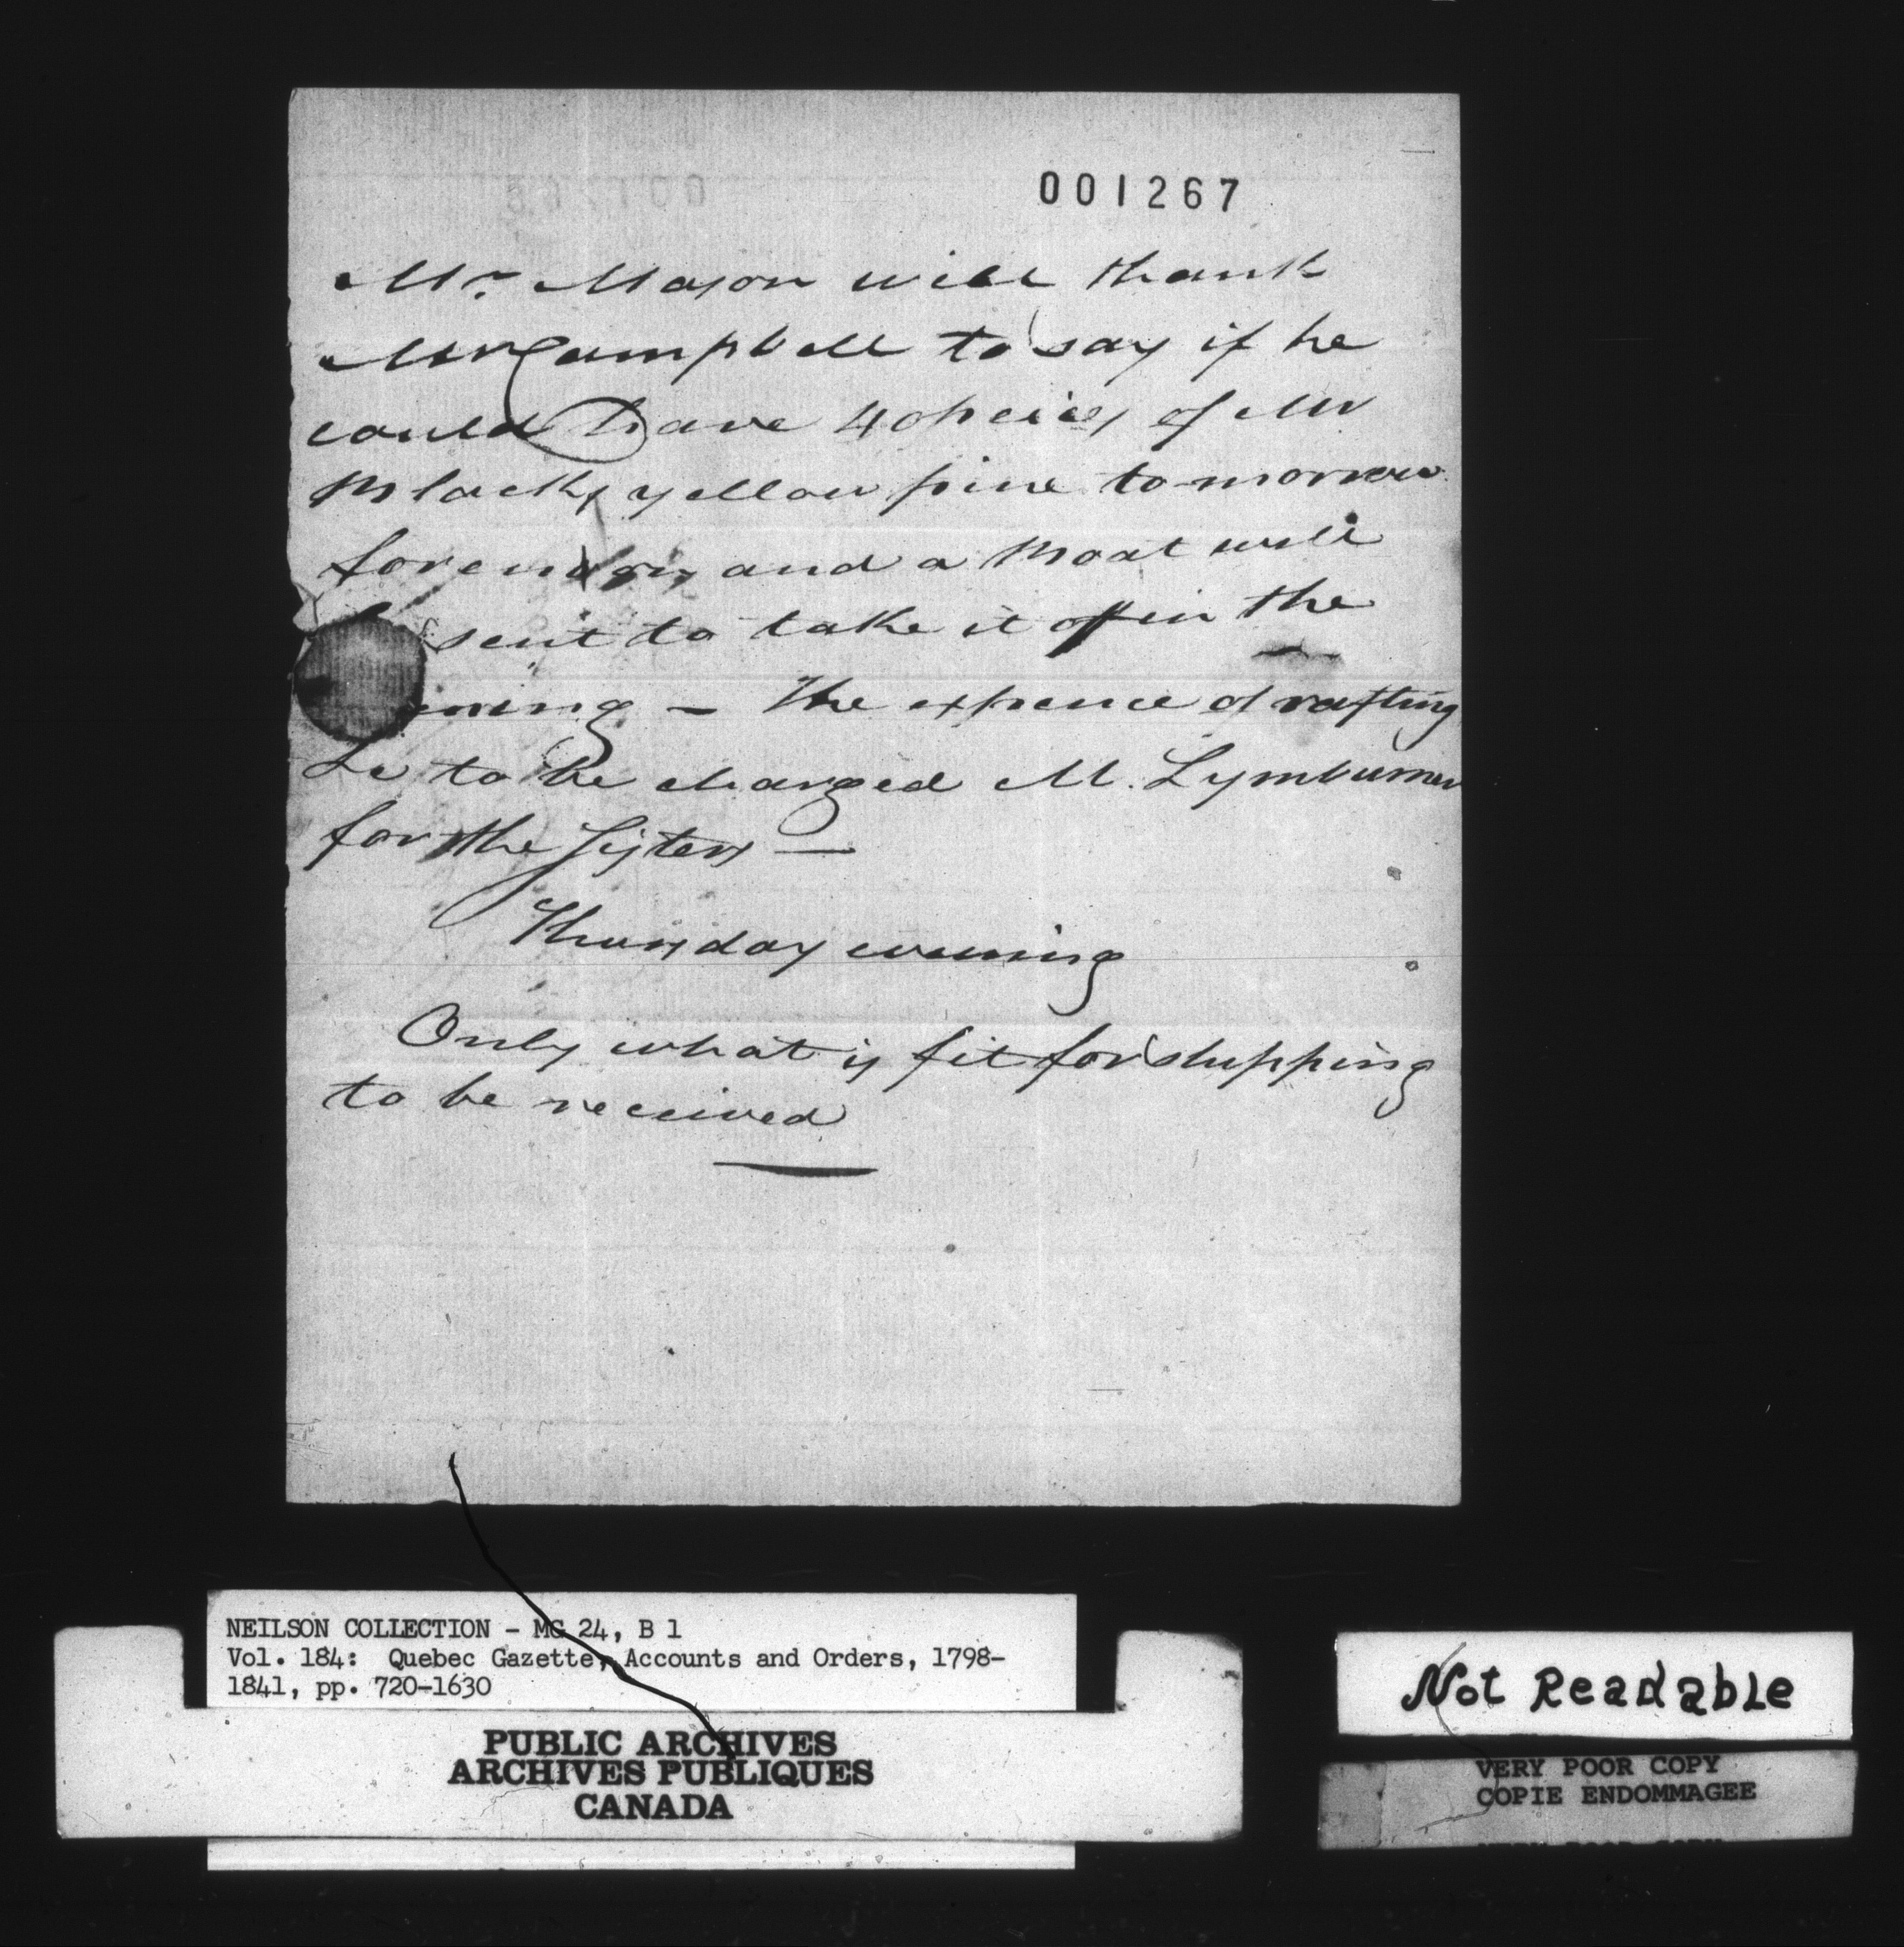 001267
Mr. Mason will thank
Mr Campbell to say if he
could have 40 peices of Mr
Blacks yellow pine to-morrow
forenoon and a Boat will
sent to take it off in the
ening - The expence of rafting
&c to be charged M. Lymburner
for the Sisters —
Thursday evening
Only what is fit for shipping
to be received
NEILSON COLLECTION - MG 24, B 1
Vol. 184: Quebec Gazette, Accounts and Orders, 1798-
1841, pp. 720-1630
PUBLIC ARCHIVES
ARCHIVES PUBLIQUES
CANADA
Not Readable
VERY POOR COPY
COPIE ENDOMMAGEE